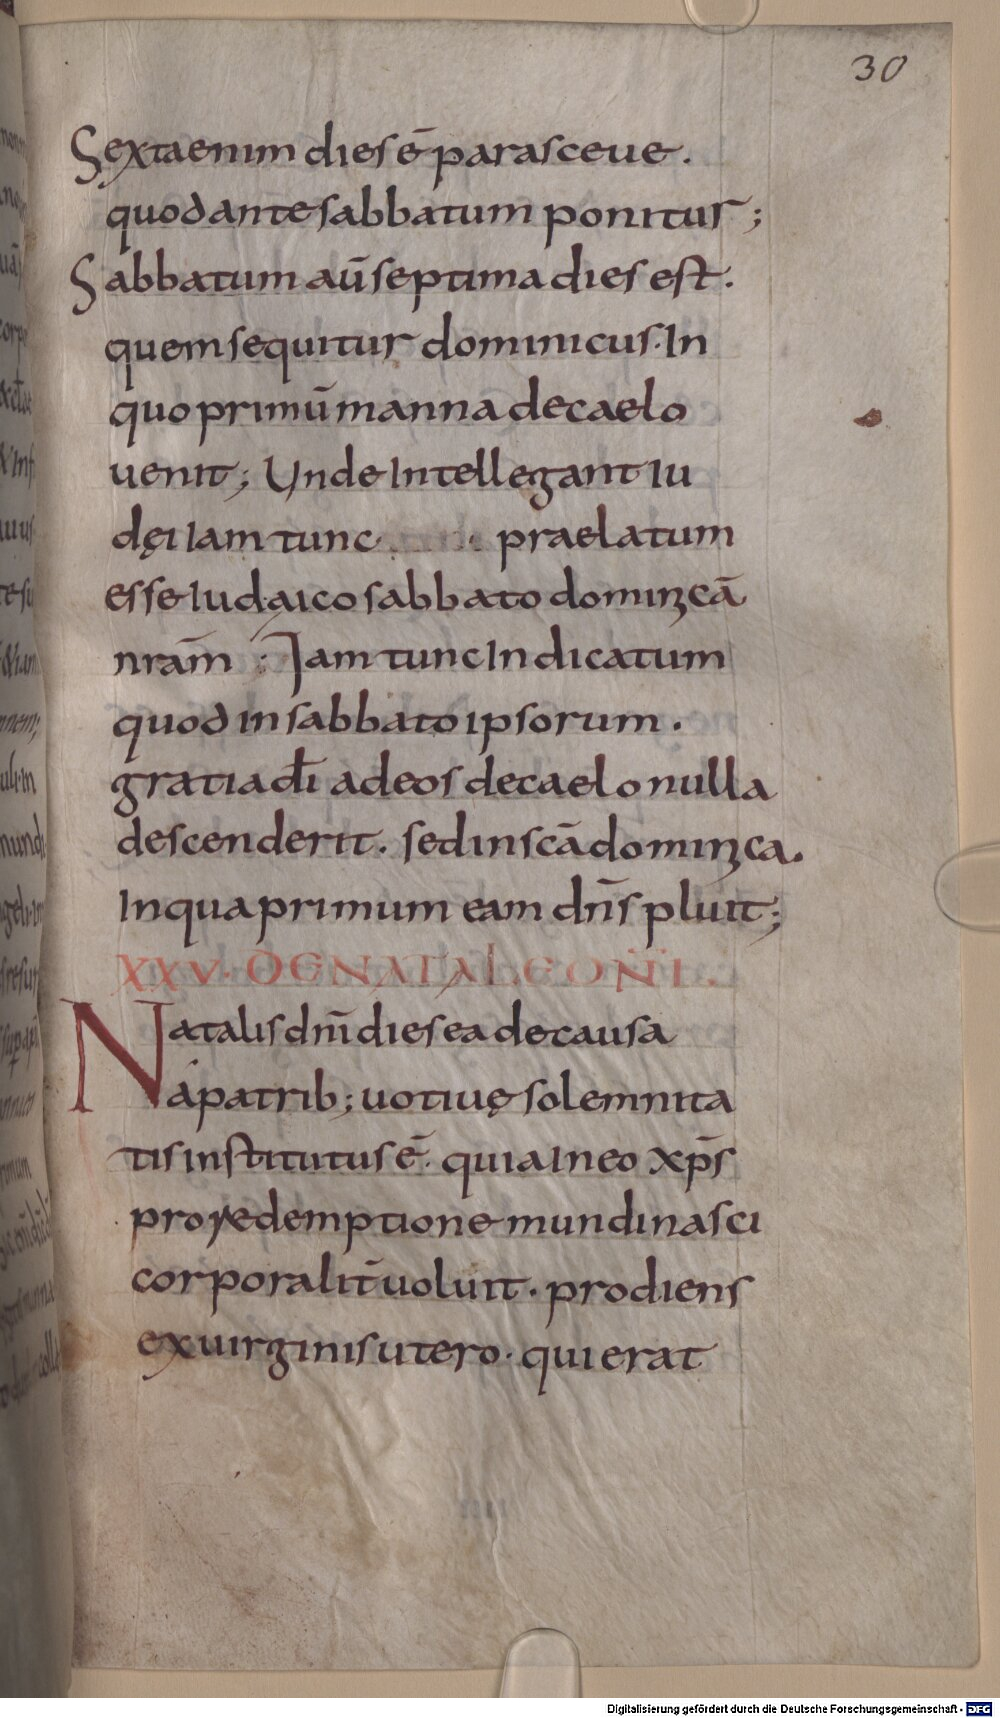 30
Sexta enim dies ē parasceue.
quod ante sabbatum ponitur;
Sabbatum aū septima dies est.
quem sequitur dominicus. In
quo primū manna de caelo
uenit; Unde Intellegant Iu
dęi Iam tunc praelatum
esse Iudaico sabbato dominicā
nrām; Iam tunc Indicatum
quod in sabbato ipsorum.
gratia dī ad eos de caelo nulla
descenderit. sed in scā dominica.
In qua primum eam dn̄s pluit;
XXV. DE NATALE DN̄I.
Natalis dn̄i dies ea de causa
a patrib; uotiuę solemnita
tis institutus ē. quia In eo xp̄s
pro redemptione mundi nasci
corporalit̄ uoluit. prodiens
ex uirginis utero. qui erat
Digitalisierung gefördert durch die Deutsche Forschungsgemeinschaft - DFG